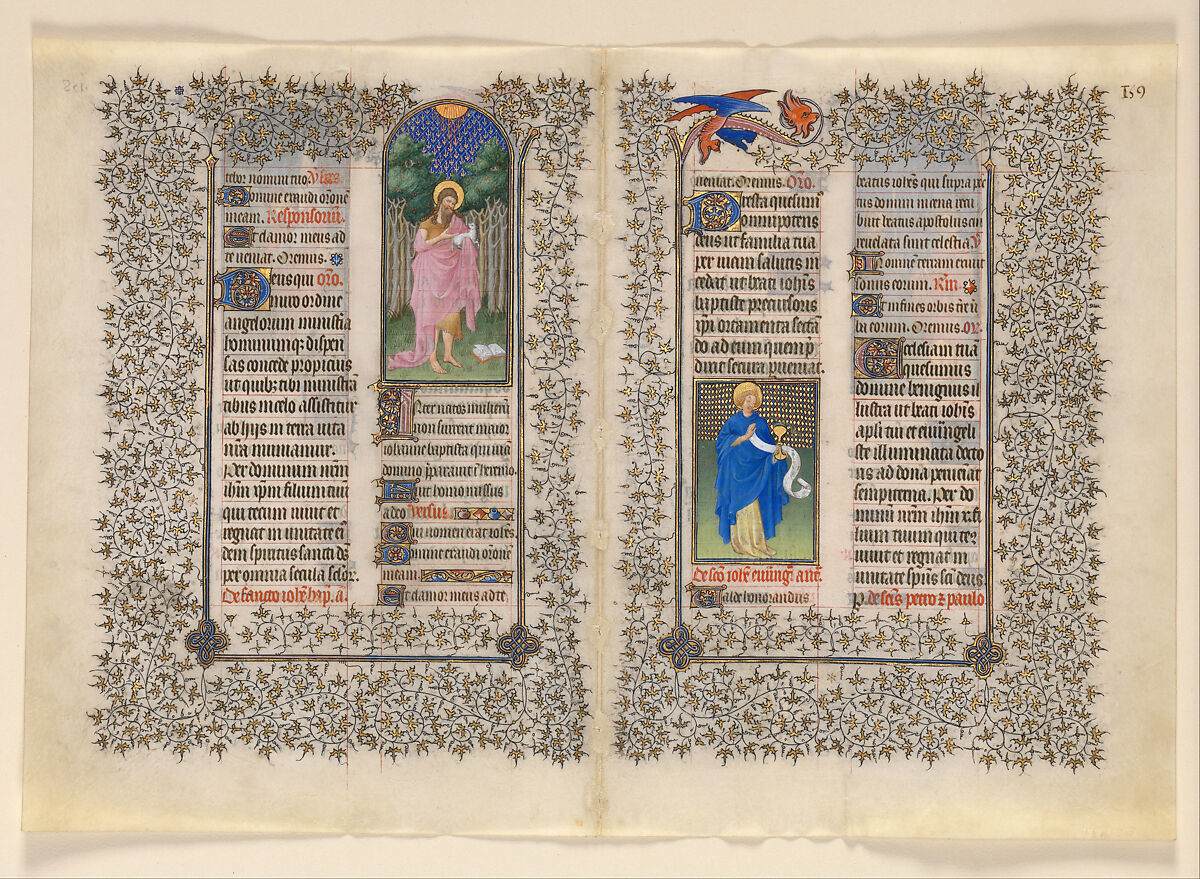 tebor nomini tuo. Vers.
Domine exaudi oronē
meam. Responsoriū.
Et clamor meus ad
te ueniat. Oremus.
Deus qui oro.
miro ordine
angelorum ministia
hominumq; dispen
sas concede propicius
ut quib; tibi ministrā
tibus in celo assistitur
ab hijs in terra uita
nr̄a muniatur.
Per dominum nrm̄
ihm̄ xp̄m filium tuū
qui tecum uiuit et
regnat in unitate ei
dem spiritus sancti ds̄
per omnia secula sclor.
De sancto iohē bap. a.
Inter natos mulierū
non surrexit maior
iohanne baptista qui uiā
domino p̄parauit ī heremo.
Fuit homo missus
a deo Versus.
Cui nomen erat iohēs.
Domine exaudi oronē
meam.
Et clamor meus ad te
159
ueniat. Oremus. Oro.
Presta quesum
omnipotens
deus ut familia tua
per uiam salutis in
cedat ut beati iohīs
baptiste precursoris
xp̄i ortamenta secta
do ad eum quem p̄
dixit secura pueniat.
De scō iohē euūng. ant.
Valde honorandus
beatus iohēs qui supra pe
tus domini in cena recu
buit beatus apostolus cui
reuelata sunt celestia. V
In omnē terram exiuit
sonus eorum. Rm̄.
Et in fines orbis tr̄e ū
ba eorum. Oremus. Or.
Ecclesiam tuā
quesumus
domine benignus il
lustra ut beati iohīs
apl̄i tui et euūngeli
ste illuminata docto
ris ad dona pueniat
sempiterna. Per do
minū nrm̄ ihm̄ x. fi
lium tuum qui tec
uiuit et regnat in
unitate sp̄us sci deus
P. de scis petro ⁊ paulo